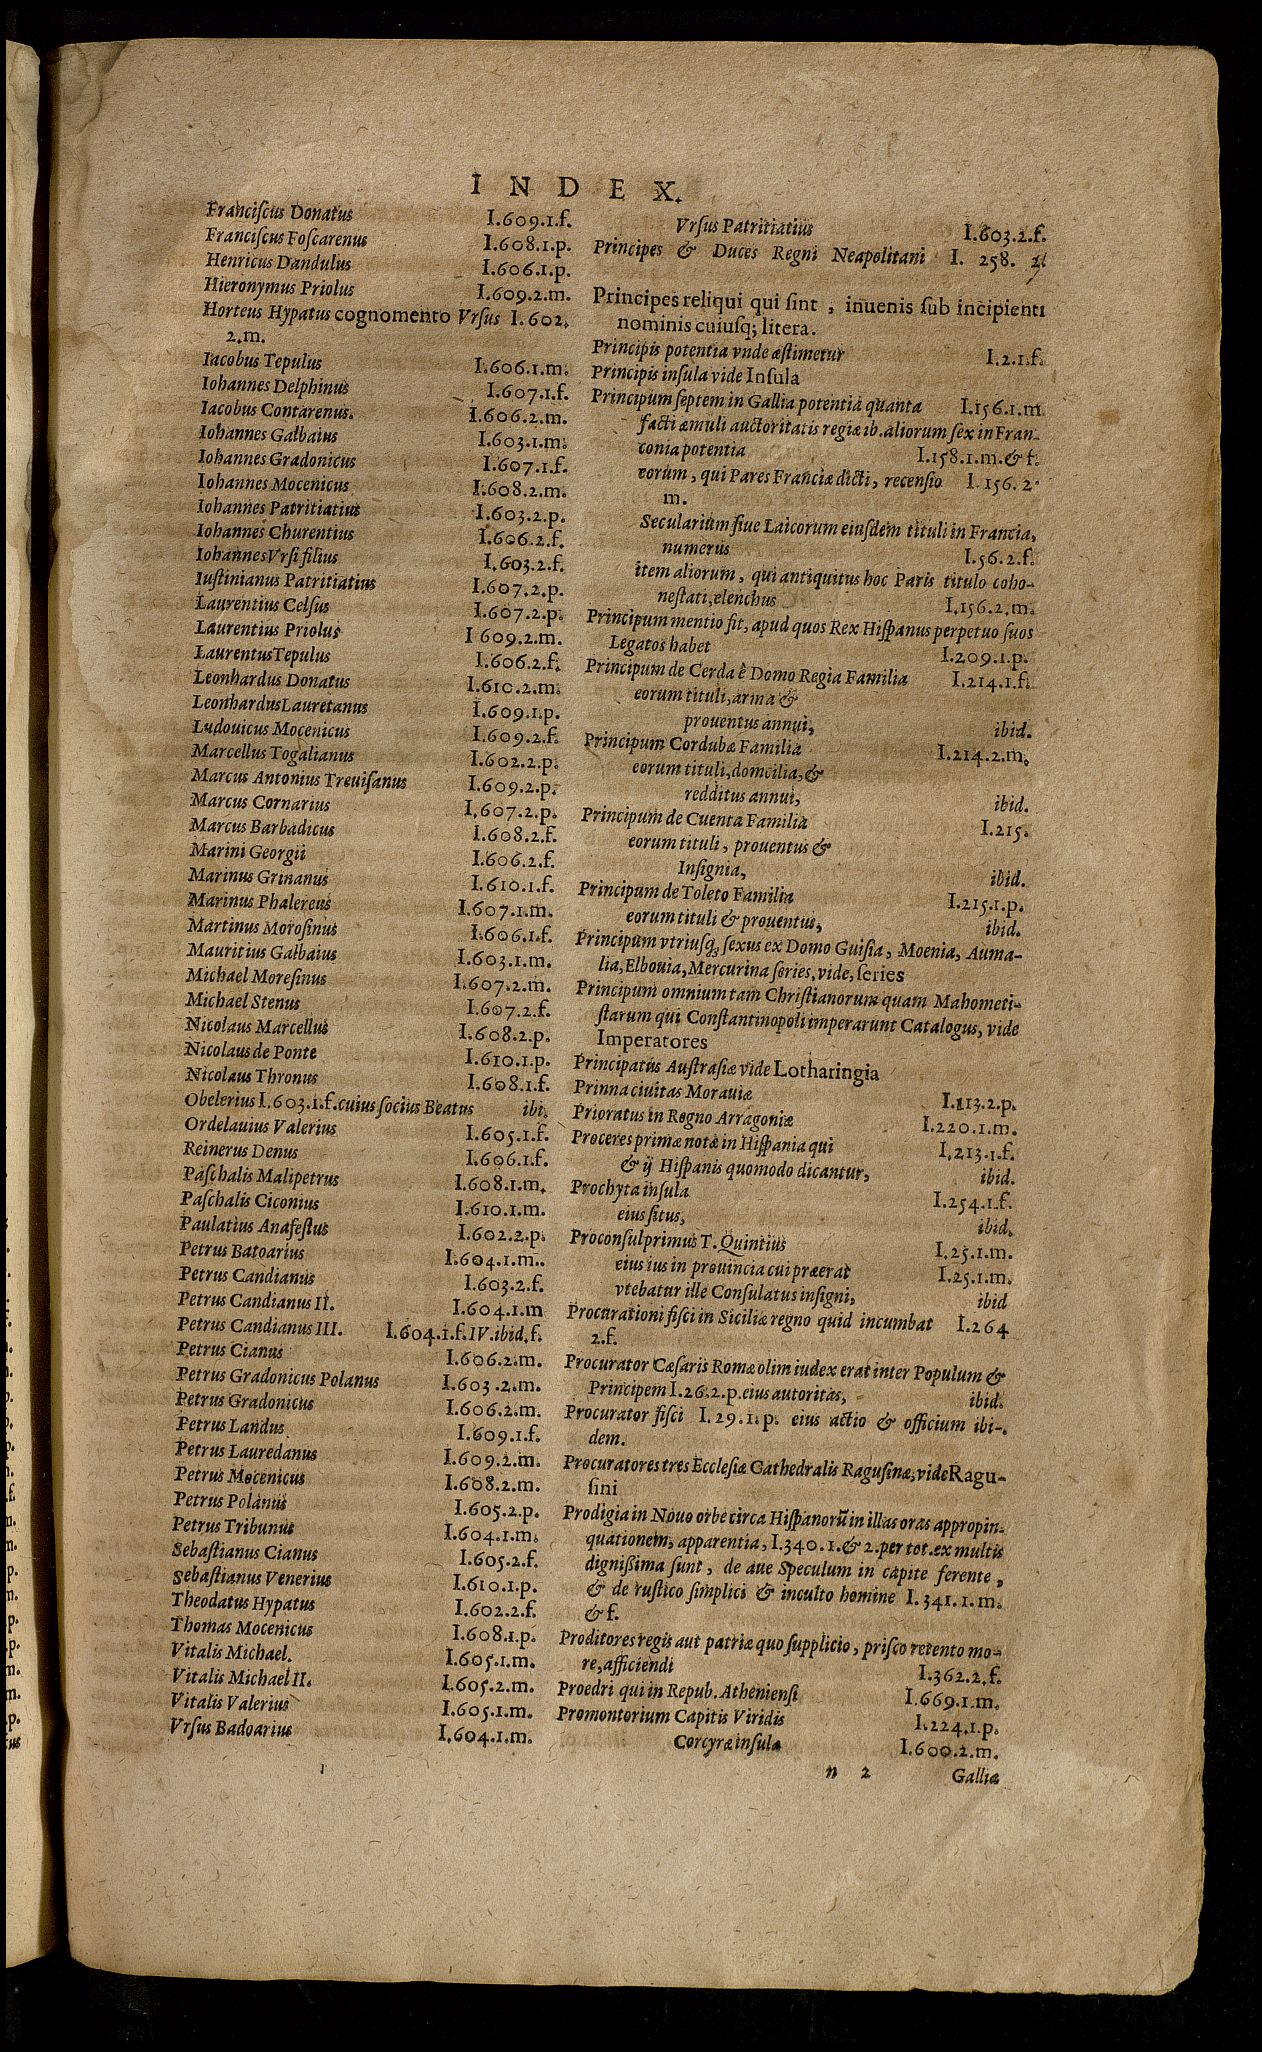 INDEX.
Franciſcus Donatus I.609.1.f.
Franciſcus Foſcarenus I.608.1.p.
Henricus Dandulus I.606.1.p.
Hieronymus Priolus I.609.2.m.
Horteus Hypatus cognomento Vrſus I.602.
2.m.
Iacobus Tepulus I.606.1.m.
Iohannes Delphinus I.607.1.f.
Iacobus Contarenus. I.606.2.m.
Iohannes Galbaius I.603.1.m.
Iohannes Gradonicus I.607.1.f.
Iohannes Mocenicus I.608.2.m.
Iohannes Patritiatius I.603.2.p.
Iohannes Churentius I.606.2.f.
Iohannes Vrſi filius I.603.2.f.
Iuſtinianus Patritiatius I.607.2.p.
Laurentius Celſus I.607.2.p.
Laurentius Priolus I 609.2.m.
Laurentus Tepulus I.606.2.f.
Leonhardus Donatus I.610.2.m.
Leonhardus Lauretanus I.609.1.p.
Ludouicus Mocenicus I.609.2.f.
Marcellus Togalianus I.602.2.p.
Marcus Antonius Treuiſanus I.609.2.p.
Marcus Cornarius I.607.2.p.
Marcus Barbadicus I.608.2.f.
Marini Georgii I.606.2.f.
Marinus Grinanus I.610.1.f.
Marinus Phalereus I.607.1.m.
Martinus Moroſinus I.606.1.f.
Mauritius Galbaius I.603.1.m.
Michael Moreſinus I.607.2.m.
Michael Stenus I.607.2.f.
Nicolaus Marcellus I.608.2.p.
Nicolaus de Ponte I.610.1.p.
Nicolaus Thronus I.608.1.f.
Obelerius I.603.1.f. cuius ſocius Beatus ibi.
Ordelauius Valerius I.605.1.f.
Reinerus Denus I.606.1.f.
Paſchalis Malipetrus I.608.1.m.
Paſchalis Ciconius I.610.1.m.
Paulatius Anafeſtus I.602.2.p.
Petrus Batoarius I.604.1.m..
Petrus Candianus I.603.2.f.
Petrus Candianus II. I.604.1.m
Petrus Candianus III. I.604.1.f. IV. ibid. f.
Petrus Cianus I.606.2.m.
Petrus Gradonicus Polanus I.603.2.m.
Petrus Gradonicus I.606.2.m.
Petrus Landus I.609.1.f.
Petrus Lauredanus I.609.2.m.
Petrus Mocenicus I.608.2.m.
Petrus Polanus I.605.2.p.
Petrus Tribunus I.604.1.m.
Sebaſtianus Cianus I.605.2.f.
Sebaſtianus Venerius I.610.1.p.
Theodatus Hypatus I.602.2.f.
Thomas Mocenicus I.608.1.p.
Vitalis Michael. I.605.1.m.
Vitalis Michael II. I.605.2.m.
Vitalis Valerius I.605.1.m.
Vrſus Badoarius I.604.1.m.
Vrſus Patritiatius I.603.2.f.
Principes & Duces Regni Neapolitani I. 258.
Principes reliqui qui ſint, inuenis ſub incipienti
nominis cuiuſq; litera.
Principis potentia vnde æſtimetur I.2.1.f.
Principis inſula vide Inſula
Principum ſeptem in Gallia potentia quanta I.156.1.m
facti æmuli auctoritatis regiæ ib. aliorum ſex in Fran-
conia potentia I.158.1.m.& f.
eorum, qui Pares Franciæ dicti, recenſio I.156.2.
m.
Secularium ſiue Laicorum eiuſdem tituli in Francia,
numerus I.56.2.f.
item aliorum, qui antiquitus hoc Paris titulo coho-
neſtati, elenchus I.156.2.m.
Principum mentio fit, apud quos Rex Hiſpanus perpetuo ſuos
Legatos habet I.209.1.p.
Principum de Cerda è Domo Regia Familia I.214.1.f.
eorum tituli, arma &
prouentus annui, ibid.
Principum Cordubæ Familia I.214.2.m.
eorum tituli, domcilia, &
redditus annui, ibid.
Principum de Cuenta Familia I.215.
eorum tituli, prouentus &
Inſignia, ibid.
Principum de Toleto Familia I.215.1.p.
eorum tituli & prouentus, ibid.
Principum vtriuſq; ſexus ex Domo Guiſia, Moenia, Auma-
lia, Elbouia, Mercurina ſeries, vide, ſeries
Principum omnium tam Chriſtianorum quam Mahometi-
ſtarum qui Conſtantinopoli imperarunt Catalogus, vide
Imperatores
Principatus Auſtraſiæ vide Lotharingia
Prinna ciuitas Morauiæ I.113.2.p.
Prioratus in Regno Arragoniæ I.220.1.m.
Proceres primæ notæ in Hiſpania qui I.213.1.f.
& ij Hiſpanis quomodo dicantur, ibid.
Prochyta inſula I.254.1.f.
eius ſitus, ibid.
Proconſul primus T. Quintius I.25.1.m.
eius ius in prouincia cui præerat I.25.1.m.
vtebatur ille Conſulatus inſigni, ibid
Procurationi fiſci in Siciliæ regno quid incumbat I.264
2.f.
Procurator Cæſaris Romæ olim iudex erat inter Populum &
Principem I.26.2.p. eius autoritas, ibid.
Procurator fiſci I.29.1.p. eius actio & officium ibi-
dem.
Procuratores tres Eccleſiæ Cathedralis Raguſinæ, vide Ragu-
ſini
Prodigia in Nouo orbe circa Hiſpanorū in illas oras appropin-
quationem, apparentia, I.340.1.& 2. per tot. ex multis
digniſſima ſunt, de aue Speculum in capite ferente,
& de ruſtico ſimplici & inculto homine I.341.1.m.
& f.
Proditores regis aut patriæ quo ſupplicio, priſco retento mo-
re, afficiendi I.362.2.f.
Proedri qui in Repub. Athenienſi I.669.1.m.
Promontorium Capitis Viridis I.224.1.p.
Corcyræ inſula I.600.2.m.
n 2 Galliæ